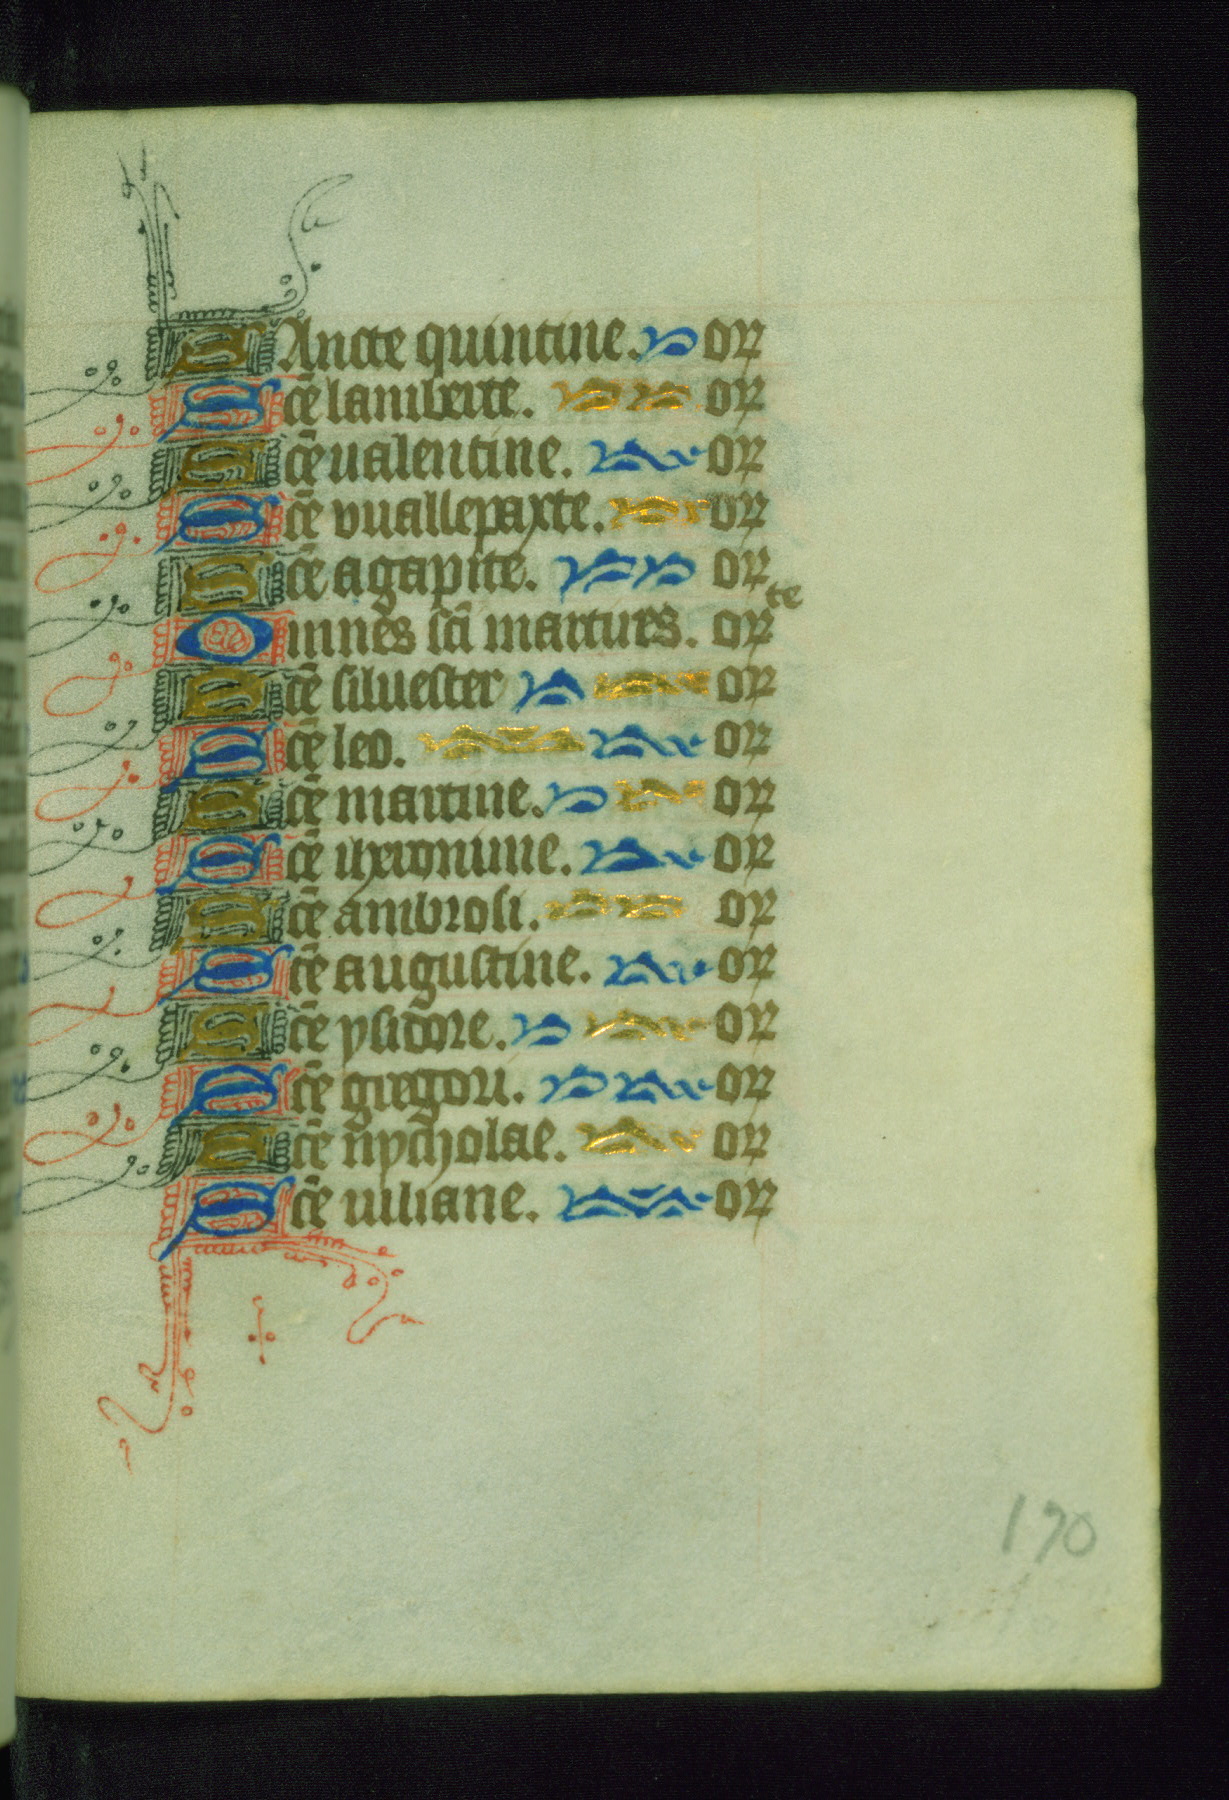 SAncte quintine. or
Scē lamberte. or
Scē ualentine. or
Scē vuallepaxte. or
Scē agapite. or
Omnes sci martires. orte
Scē siluester or
Scē leo. or
Scē martine. or
Scē iheronime. or
Scē ambrosi. or
Scē augustine. or
Scē ysidore. or
Scē gregori. or
Scē nycholae. or
Scē iuliane. or
190